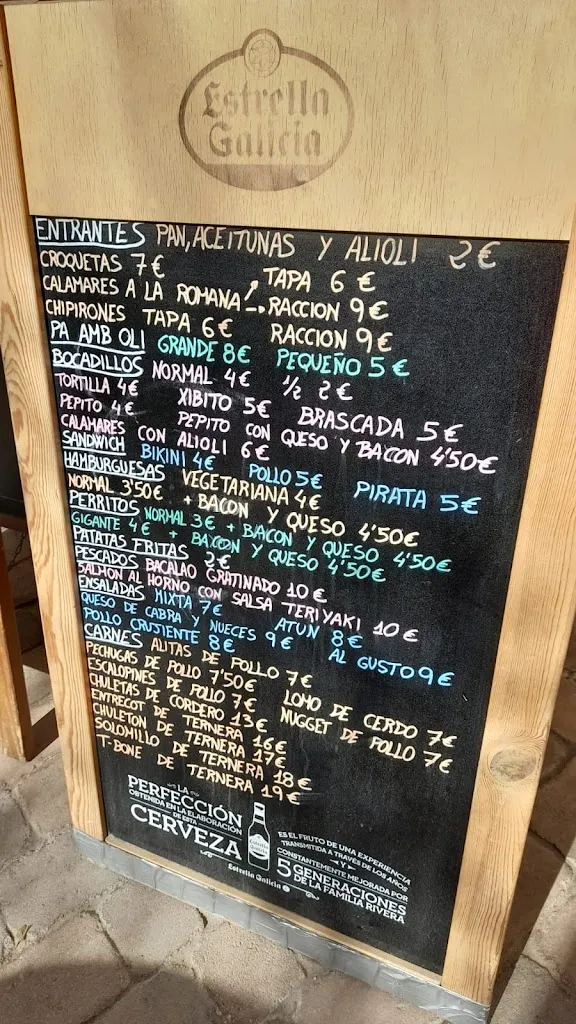 Estrella
Galicia
ENTRANTES PAN, ACEITUNAS Y ALIOLI 2€
CROQUETAS 7€
CALAMARES A LA ROMANA TAPA 6€
RACCION 9€
CHIPIRONES TAPA 6€ RACCION 9€
PA AMB OLI GRANDE 8€ PEQUEÑO 5€
BOCADILLOS NORMAL 4€ 1/2 2€
TORTILLA 4€ XIBITO 5€ BRASCADA 5€
PEPITO 4€ PEPITO CON QUESO Y BACON 4'50€
CALAMARES CON ALIOLI 6€
SANDWICH BIKINI 4€ POLLO 5€ PIRATA 5€
HAMBURGUESAS VEGETARIANA 4€
NORMAL 3'50€ + BACON Y QUESO 4'50€
PERRITOS NORMAL 3€ + BACON Y QUESO 4'50€
GIGANTE 4€ + BACON Y QUESO 4'50€
PATATAS FRITAS 3€
PESCADOS BACALAO GRATINADO 10€
SALMON AL HORNO CON SALSA TERIYAKI 10€
ENSALADAS MIXTA 7€ ATUN 8€
QUESO DE CABRA Y NUECES 9€ AL GUSTO 9€
POLLO CRUJIENTE 8€
CARNES ALITAS DE POLLO 7€
PECHUGAS DE POLLO 7'50€ LOMO DE CERDO 7€
ESCALOPINES DE POLLO 7€ NUGGET DE POLLO 7€
CHULETAS DE CORDERO 13€
ENTRECOT DE TERNERA 16€
CHULETON DE TERNERA 17€
SOLOMILLO DE TERNERA 18€
T-BONE DE TERNERA 19€
LA
PERFECCIÓN
OBTENIDA EN LA ELABORACIÓN
DE ESTA
CERVEZA
Estrella Galicia
ES EL FRUTO DE UNA EXPERIENCIA
TRANSMITIDA A TRAVÉS DE LOS AÑOS
Y
CONSTANTEMENTE MEJORADA POR
5 GENERACIONES
DE LA FAMILIA RIVERA